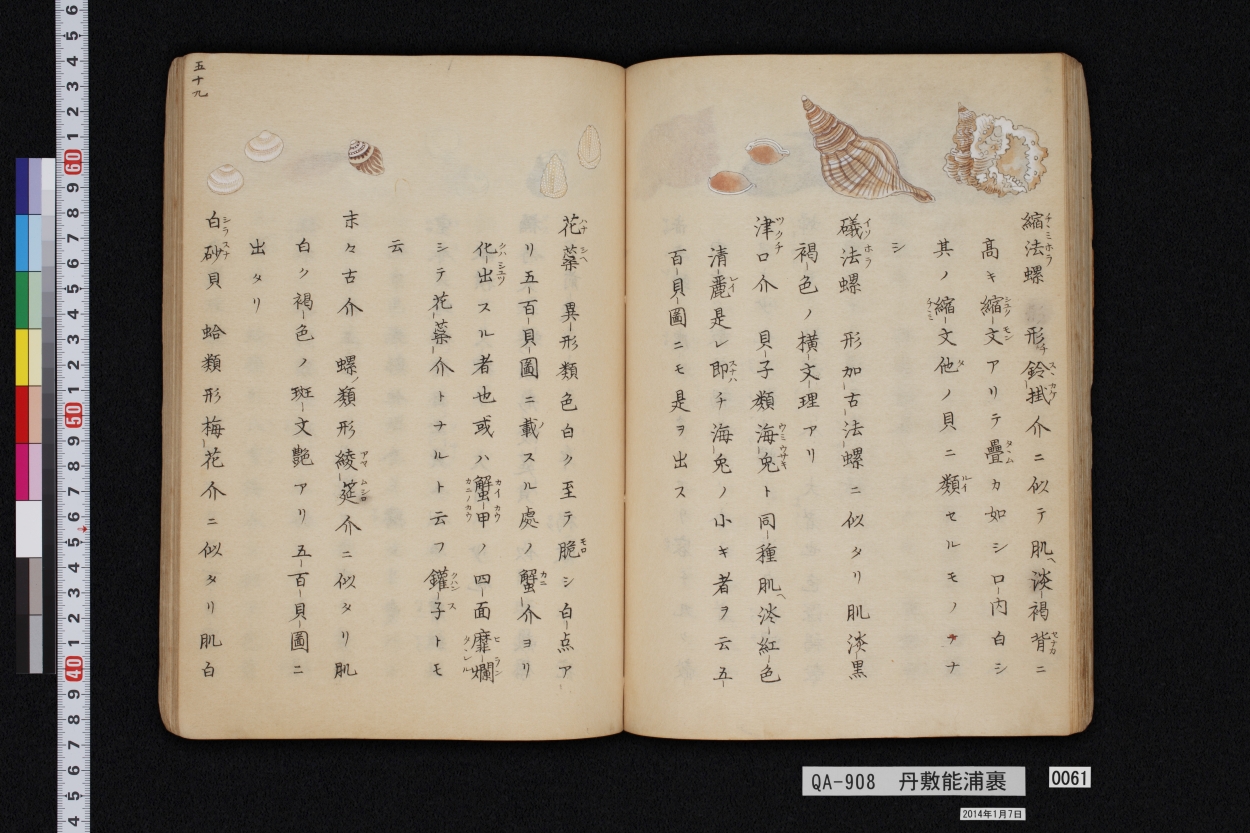 縮法螺 形チ鈴掛介ニ似テ肌ヘ淡褐背ニ
髙キ縮文アリテ疊カ如シ口内白シ
其ノ縮文他ノ貝ニ類セルモノナ
シ
礒法螺 形加古法螺ニ似タリ肌淡黒
褐色ノ横文理アリ
津口介 貝子類海兔ト同種肌ヘ淡紅色
清麗是レ即チ海兔ノ小キ者ヲ云五
百貝圖ニモ是ヲ出ス
花蘂 異形類色白ク至テ脆シ白点ア
リ五百貝圖ニ載スル處ノ蟹介ヨリ
化出スル者也或ハ蟹甲ノ四面靡爛
シテ花蘂介トナルト云フ鑵子トモ
云
末々古介 螺ノ類形綾筵介ニ似タリ肌
白ク褐色ノ斑文艶アリ五百貝圖ニ
出タリ
白砂貝 蛤類形梅花介ニ似タリ肌白
五十九
QA-908 丹敷能浦裹
0061
2014年1月7日